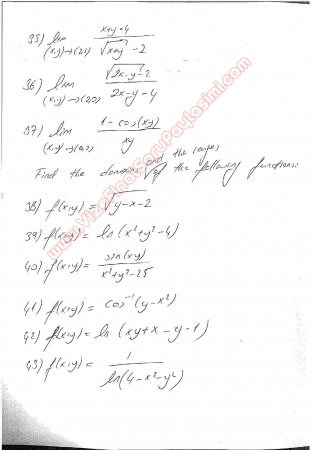 35) lim (x,y)→(2,2) x+y-4 / √(x+y) - 2
36) lim (x,y)→(2,0) √(2x-y) - 2 / 2x-y-4
37) lim 1 - cos(xy) / xy
Find the domains and the ranges of the following functions:
38) f(x,y) = √(y-x-2)
39) f(x,y) = ln(x²+y²-4)
40) f(x,y) = sin(xy) / x²+y²-25
41) f(x,y) = cos⁻¹(y-x²)
42) f(x,y) = ln(xy+x-y-1)
43) f(x,y) = 1 / ln(4-x²-y²)
www.VizeFinalSoruPaylasimi.com